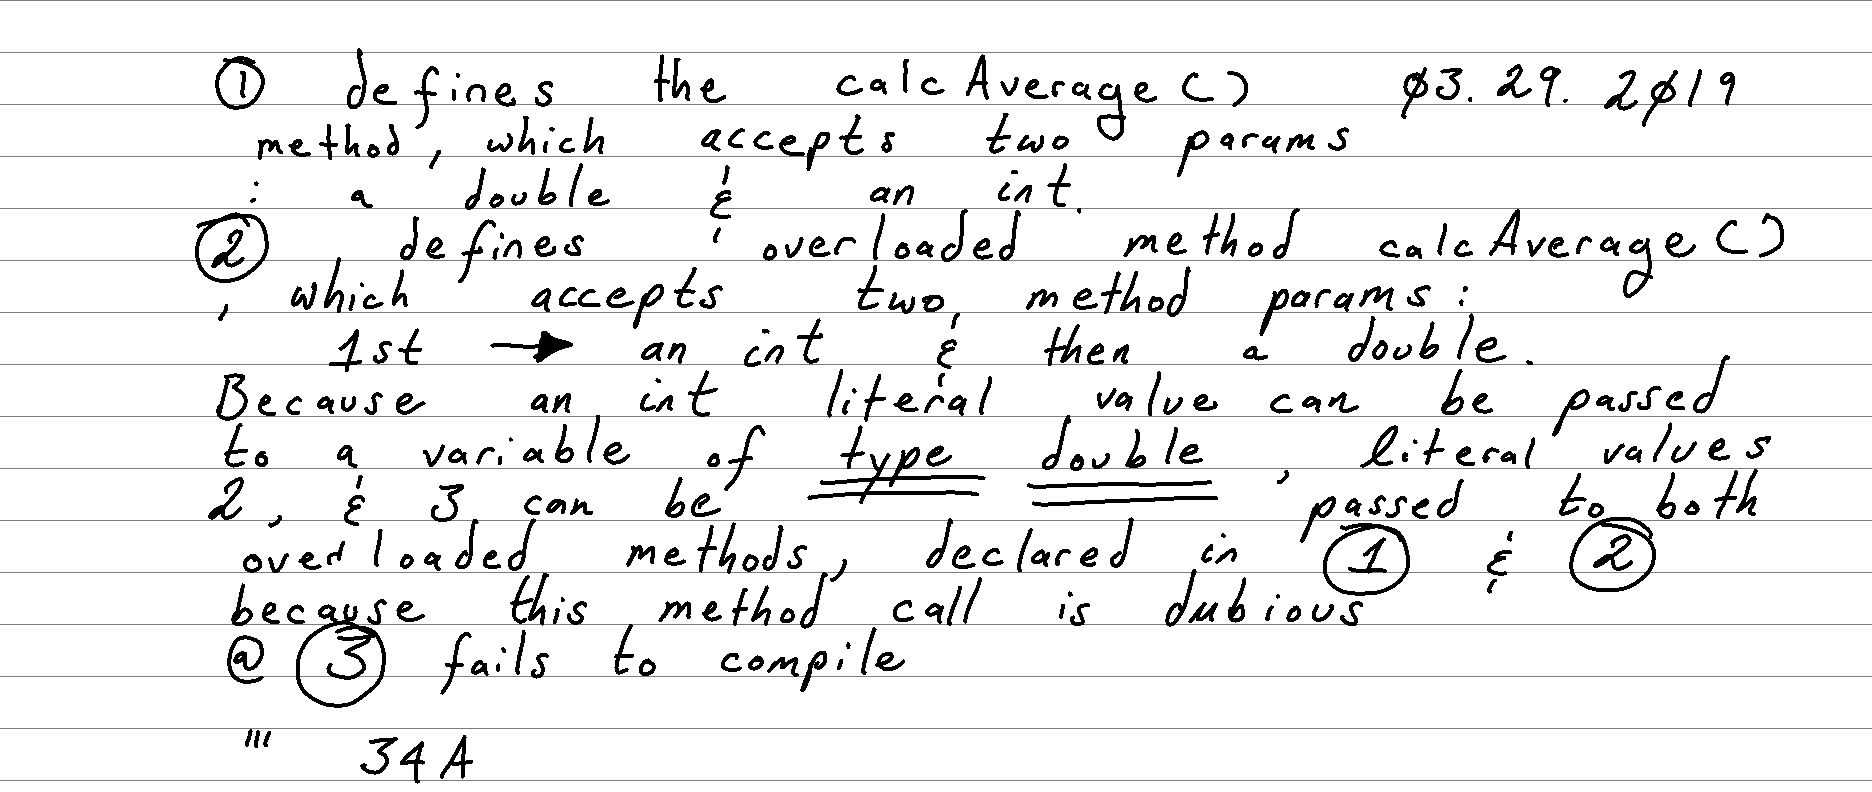 ① defines the calcAverage() 03.29.2019
method, which accepts two params
: a double & an int.
② defines overloaded method calcAverage()
, which accepts two method params:
1st → an int & then a double.
Because an int literal value can be passed
to a variable of type double, literal values
2, & 3 can be passed to both
overloaded methods, declared in ① & ②
because this method call is dubious
@ ③ fails to compile
''' 34A